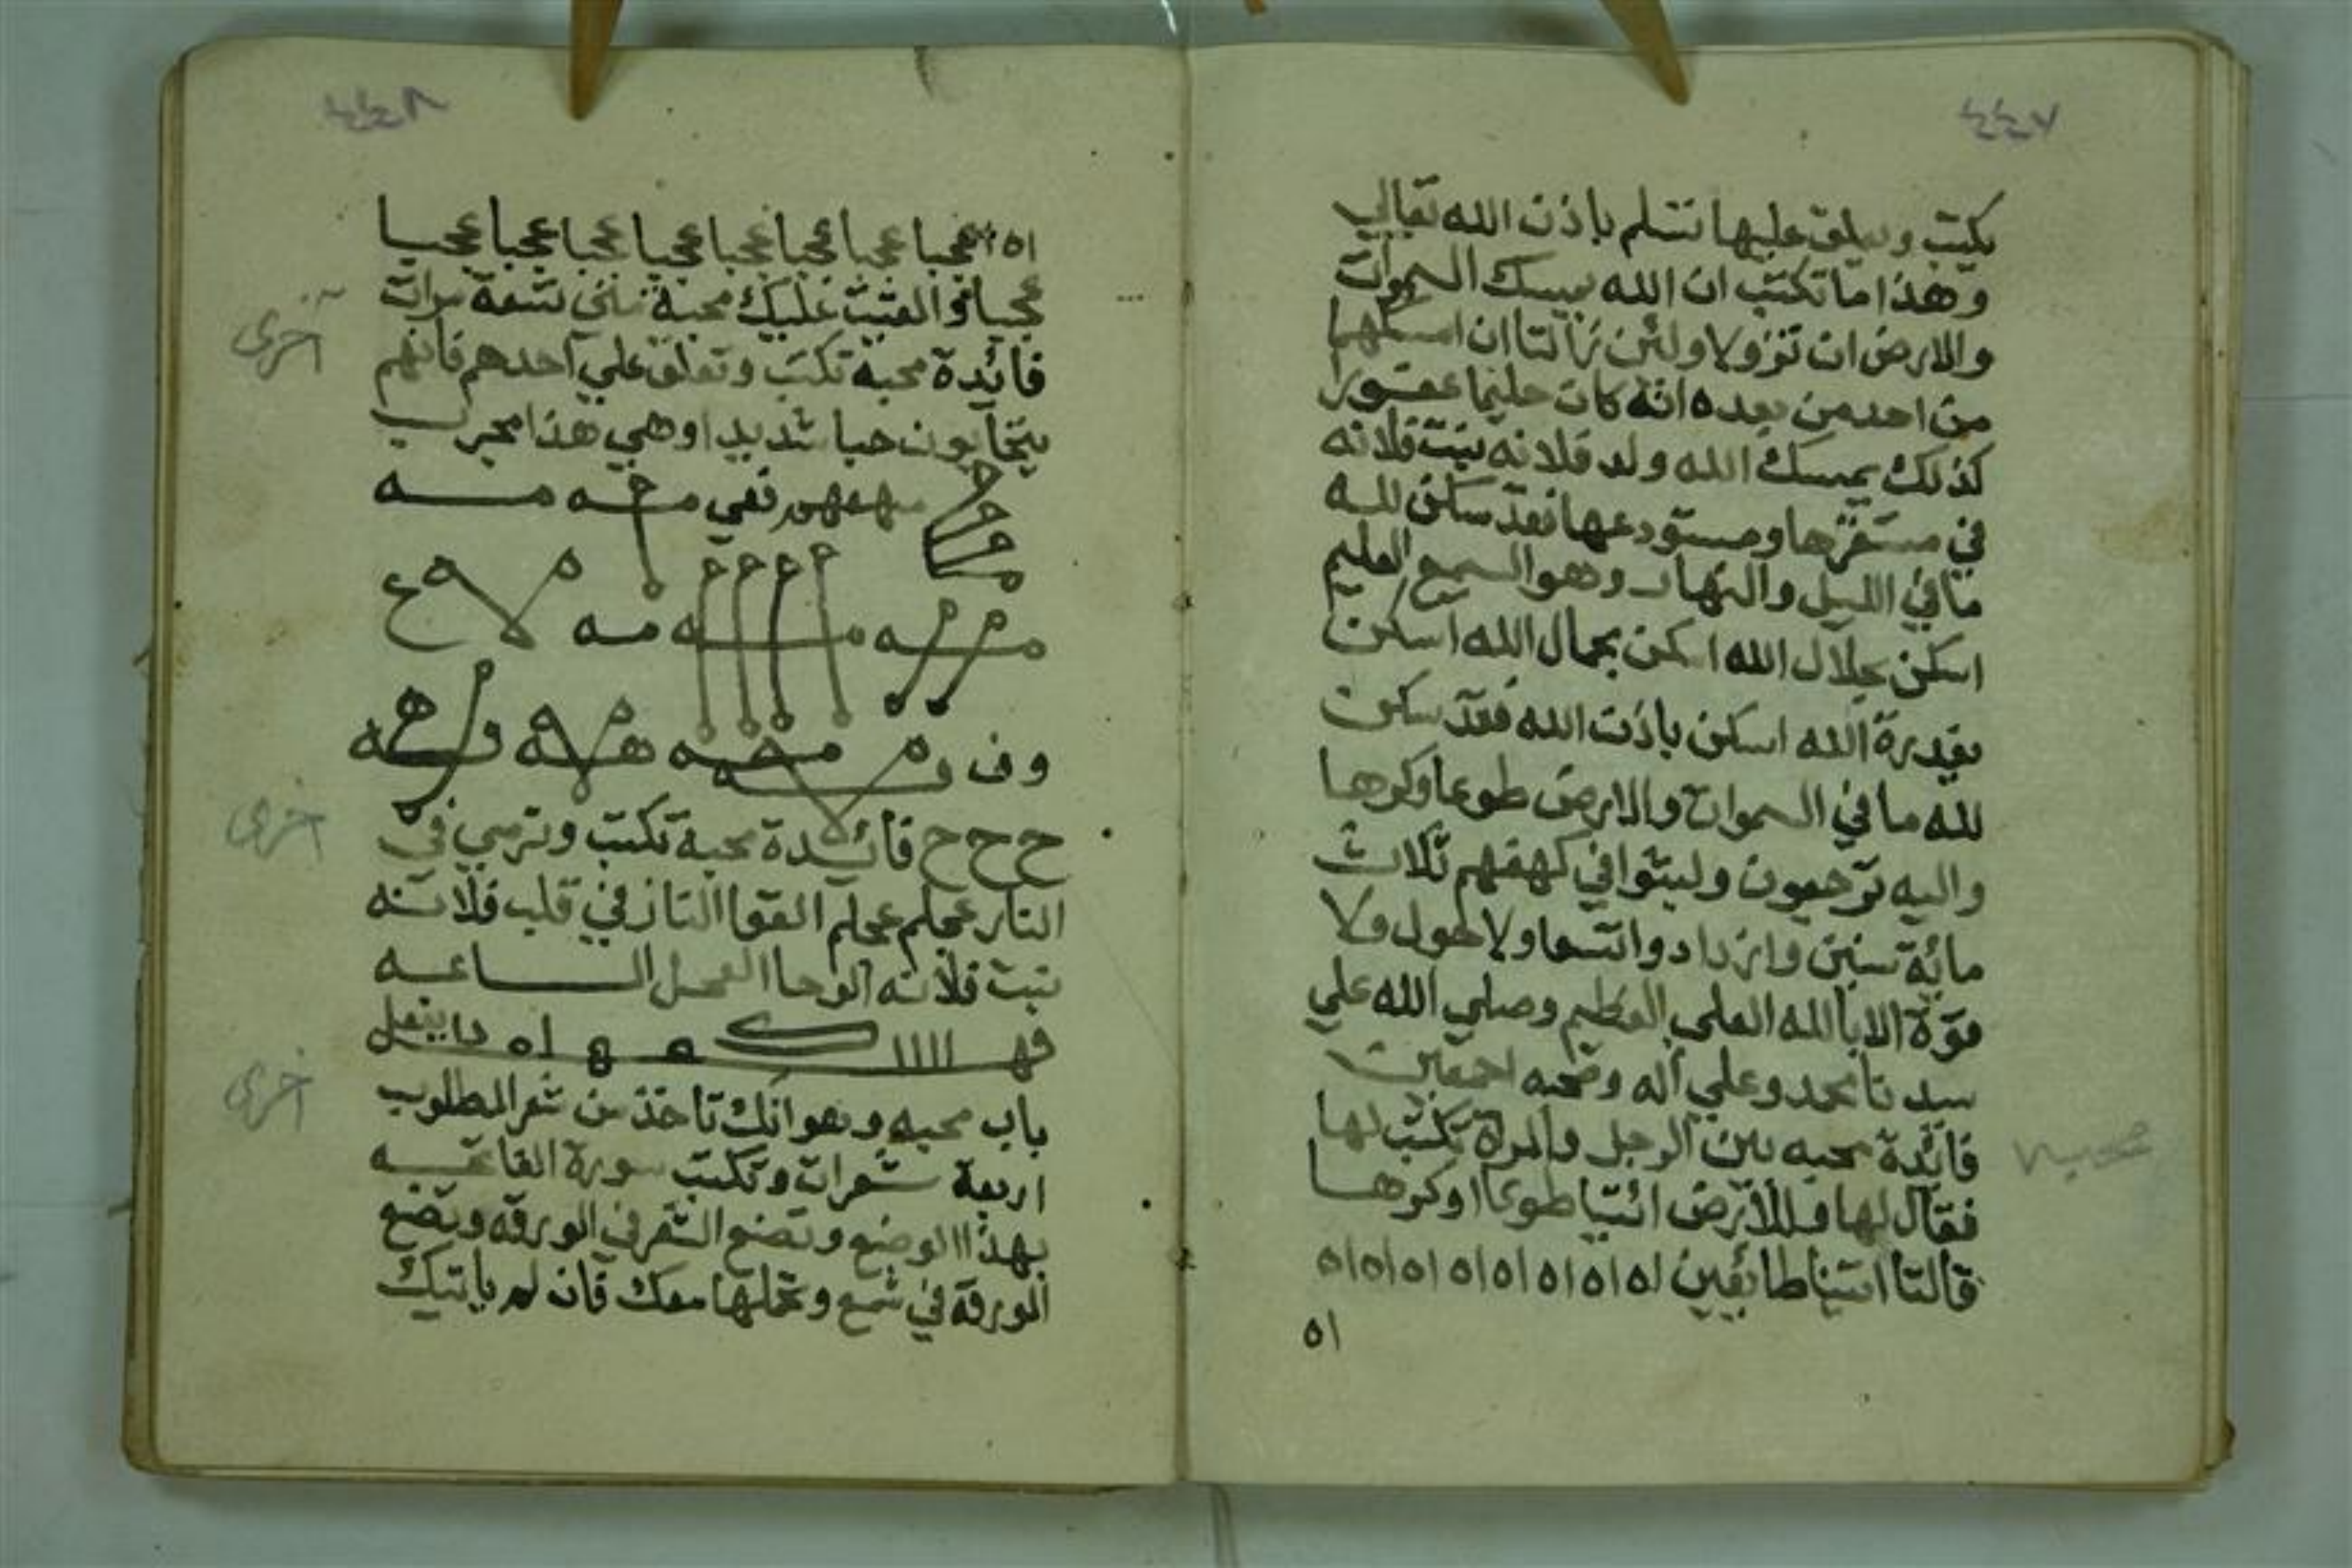 ٤٤٧
يكتب ويعلق عليها تسلم باذن الله تعالي
وهذا ما تكتب ان الله يمسك السموات
والارض ان تزولا ولئن زالتا ان امسكهما
من احد من بعده انه كان حليما غفورا
كذلك يمسك الله ولد فلانه بنت فلانه
في مستقرها ومستودعها فقد سكن لله
ما في الليل والنهار وهو السميع العليم
اسكن بجلال الله اسكن بجمال الله اسكن
بقدرة الله اسكن باذن الله فقد سكن
لله ما في السموات والارض طوعا وكرها
واليه ترجعون ولبثوا في كهفهم ثلاث
مائة سنين وازدادوا تسعا ولا حول ولا
قوة الا بالله العلي العظيم وصلي الله علي
سيدنا محمد وعلي آله وصحبه اجمعين
فائدة محبه بين الرجل والمراة تكتب لها
محبه
فقال لها وللارض ائتيا طوعا او كرها
قالتا اتينا طائعين اه اه اه اه اه اه اه اه
اه
٤٤٨
اه عجبا عجبا عجبا عجبا عجبا عجبا عجبا عجبا
عجبا والقيت عليك محبة مني تسعة مرات
اخرى
فائدة محبة تكتب وتعلق علي احدهم فانهم
يتحابون حبا شديدا وهي هذا مجرب
وف
ح ح ح فائدة محبة تكتب وترمي في
اخرى
النار عجلم عجلم القوا النار في قلب فلانه
بنت فلانه الوحا العجل الساعه
اخرى
باب محبه وهو انك تاخذ من شعر المطلوب
اربعة شعرات وتكتب سورة القارعه
بهذا الوضع وتضع الشعر في الورقه وتضع
الورقة في شمع وتحملها معك فان لم ياتيك